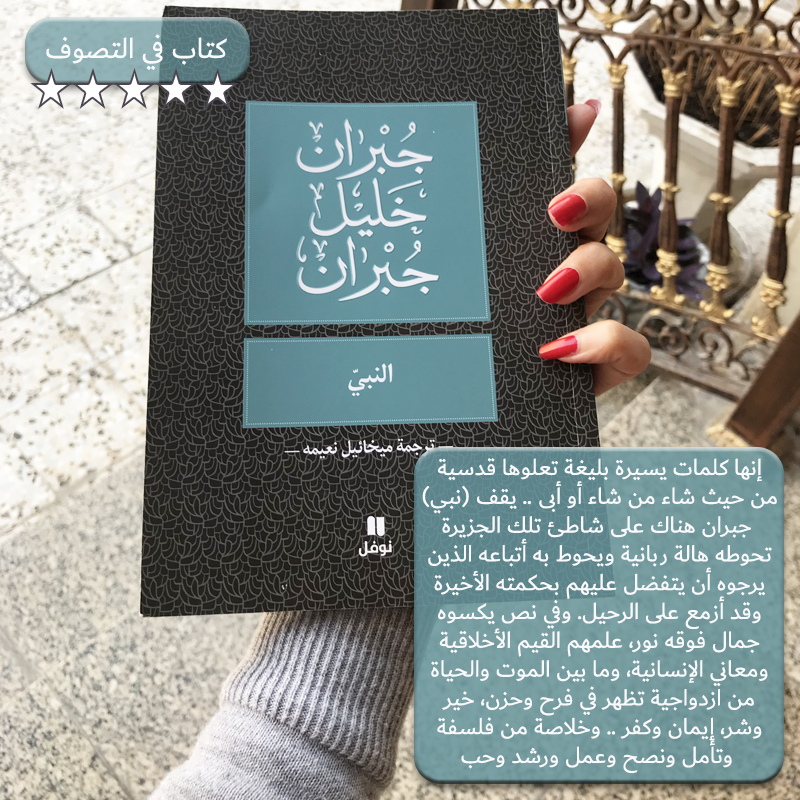 كتاب في التصوف
جُبْران
خَليْل
جُبْران
النبيّ
ترجمة ميخائيل نعيمه
نوفل
إنها كلمات يسيرة بليغة تعلوها قدسية
من حيث شاء من شاء أو أبى .. يقف (نبي)
جبران هناك على شاطئ تلك الجزيرة
تحوطه هالة ربانية ويحوط به أتباعه الذين
يرجوه أن يتفضل عليهم بحكمته الأخيرة
وقد أزمع على الرحيل. وفي نص يكسوه
جمال فوقه نور، علمهم القيم الأخلاقية
ومعاني الإنسانية، وما بين الموت والحياة
من ازدواجية تظهر في فرح وحزن، خير
وشر، إيمان وكفر .. وخلاصة من فلسفة
وتأمل ونصح وعمل ورشد وحب